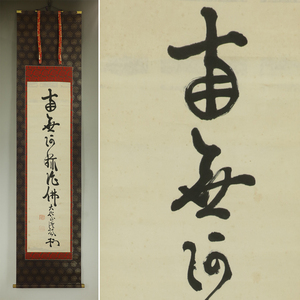 南無阿弥陀佛
南無阿